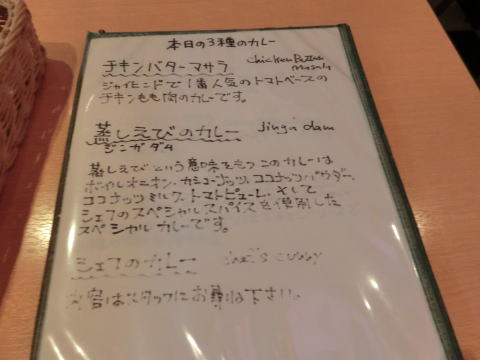 本日の3種のカレー
チキンバターマサラ chicken Butter masala
ジャイヒンドで1番人気のトマトベースの
チキンもも肉のカレーです。
蒸しえびのカレー jinga dam
ジンガダム
蒸しえびという意味を持つこのカレーは
ボイルオニオン、カシューナッツ、ココナッツパウダー、
ココナッツミルク、トマトピューレ、そして
シェフのスペシャルスパイスを使用した
スペシャルカレーです。
シェフのカレー chef's curry
内容はスタッフにお尋ね下さい。